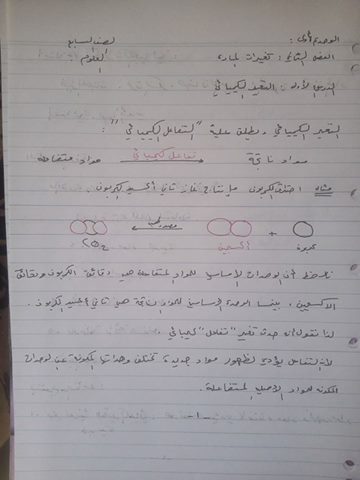 الوحدة الأولى: الصف السابع
الفصل الثاني: تغيرات المادة العلوم
الدرس الأول: التغير الكيميائي
التغير الكيميائي ويطلق عليه "التفاعل الكيميائي":
مواد متفاعلة تفاعل كيميائي مواد ناتجة
مثال احتراق الكربون مع إنتاج غاز ثاني أكسيد الكربون.
+
كربون أكسجين CO2
نلاحظ أن الوحدات الأساسية للمواد المتفاعلة هي دقائق الكربون ودقائق
الأكسجين، بينما الوحدة الأساسية للمواد الناتجة هي ثاني أكسيد الكربون.
لذا نقول أن حدث تغير "تفاعل" كيميائي
لأن التفاعل يؤدي لظهور مواد جديدة تختلف وحداتها المكونة عن الوحدات
المكونة للمواد الأصلية المتفاعلة.
-1-